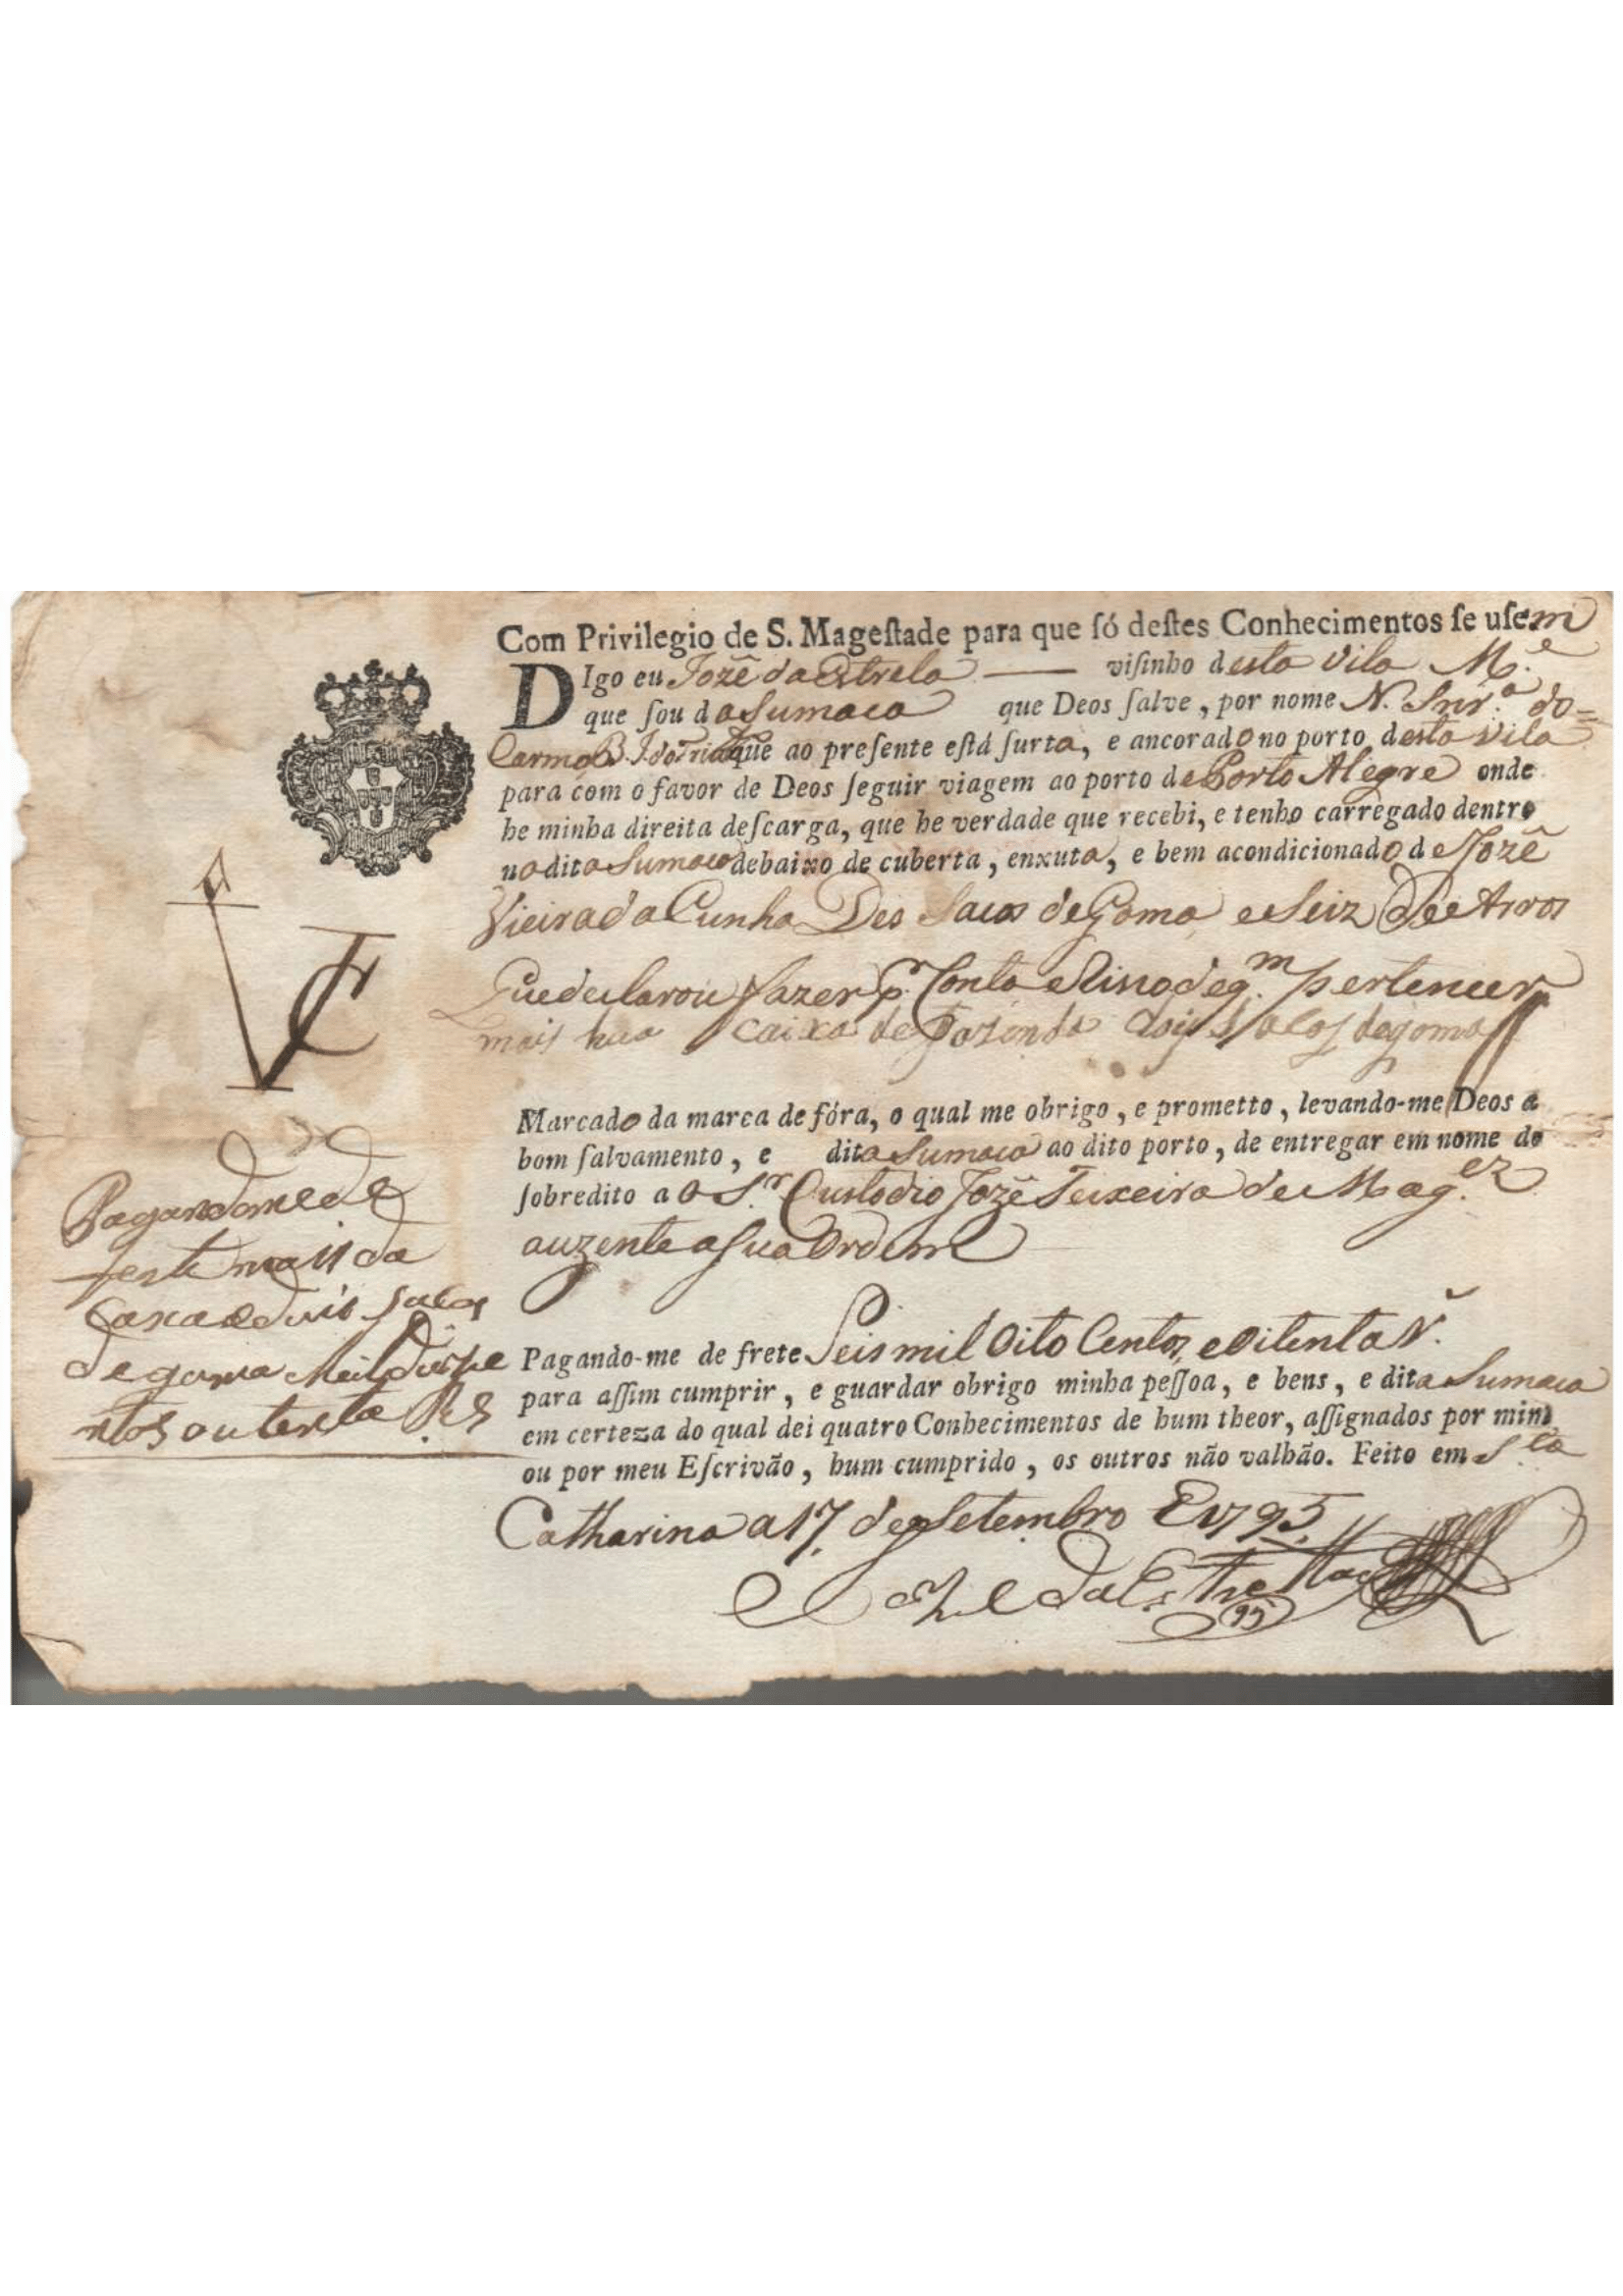 Com Privilegio de S. Mageſtade para que ſó deſtes Conhecimentos ſe uſem
DIgo eu Jozê da Estrela viſinho desta Vila M.e
que ſou da Sumaca que Deos ſalve, por nome N. Snr.a do=
Carmo B. J. do que ao preſente eſtá ſurta, e ancorado no porto desta Vila
para com o favor de Deos ſeguir viagem ao porto de Porto Alegre onde
he minha direita deſcarga, que he verdade que recebi, e tenho carregado dentro
na dita Sumaca debaixo de cuberta, enxuta, e bem acondicionado de Jozê
Vieira da Cunha Des Sacos de Goma e Seiz de Arros
Que declarou fazer p.r Conta e Risco de q.m pertencer
mais hua caixa de Fazenda dois sacos de goma
Marcado da marca de fóra, o qual me obrigo, e prometto, levando-me Deos a
bom ſalvamento, e dita Sumaca ao dito porto, de entregar em nome do
ſobredito a o S.r Custodio Jozê Teixeira de Mag.ez
auzente a Sua Ordem
Pagandome de
frete mais da
Caxa e duis Sacos
de goma Mil duze
ntos outenta Rs
Pagando-me de frete Seis mil Oito Centos, e Oitenta r.
para aſſim cumprir, e guardar obrigo minha peſſoa, e bens, e dita Sumaca
em certeza do qual dei quatro Conhecimentos de hum theor, aſſignados por mim
ou por meu Eſcrivão, hum cumprido, os outros não valhão. Feito em S.ta
Catharina a 17 de Setembro 1795
Joze da Estrella